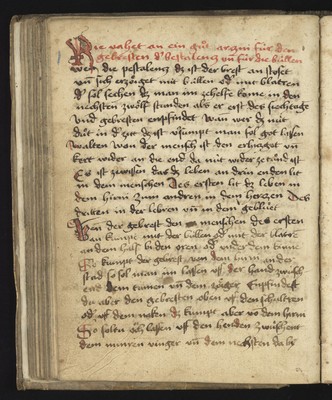 Hie vahet an ein gůt arczni für den
gebresten d' pestalencz vn̄ für die büllen
Wen die pestalencz dz ist der brest an stosset
vn̄ sich erzöiget mit büllen od' mit blatren
d' sol sechen dz man im zehelfe kome in den
nechsten zwölf stunden als er erst des siechtags
vnd gebresten enpfindet Wan wer dz nit
tůt in d' zit so ist man sol got lassen
walten wan der mensch ist den
kert wider an die end da nit wider ist
Es ist zewissen das dz leben an drin enden lit
in dem menschen Des ersten lit dz leben in
dem hirni zum andren in dem herczen Des
dritten in der lebren vn̄ in dem geblüet
Wen der gebrest den menschen des ersten
an kumpt mit der büllen od' mit der blatre
an dem hals bi den oren od' vnder dem kinne
So kumpt der gebrest von dem hirni an der
stat so sol man im lassen vff der hand zwüsch
ent dem tumen vn̄ dem zöiger Enpfindest
du aber den gebresten oben vf den schultren
od' vf dem naken dz kumpt aber vō dem hirni
So soltu öch lassen vff den henden zwüschent
dem minren vinger vn̄ dem nechsten da bÿ